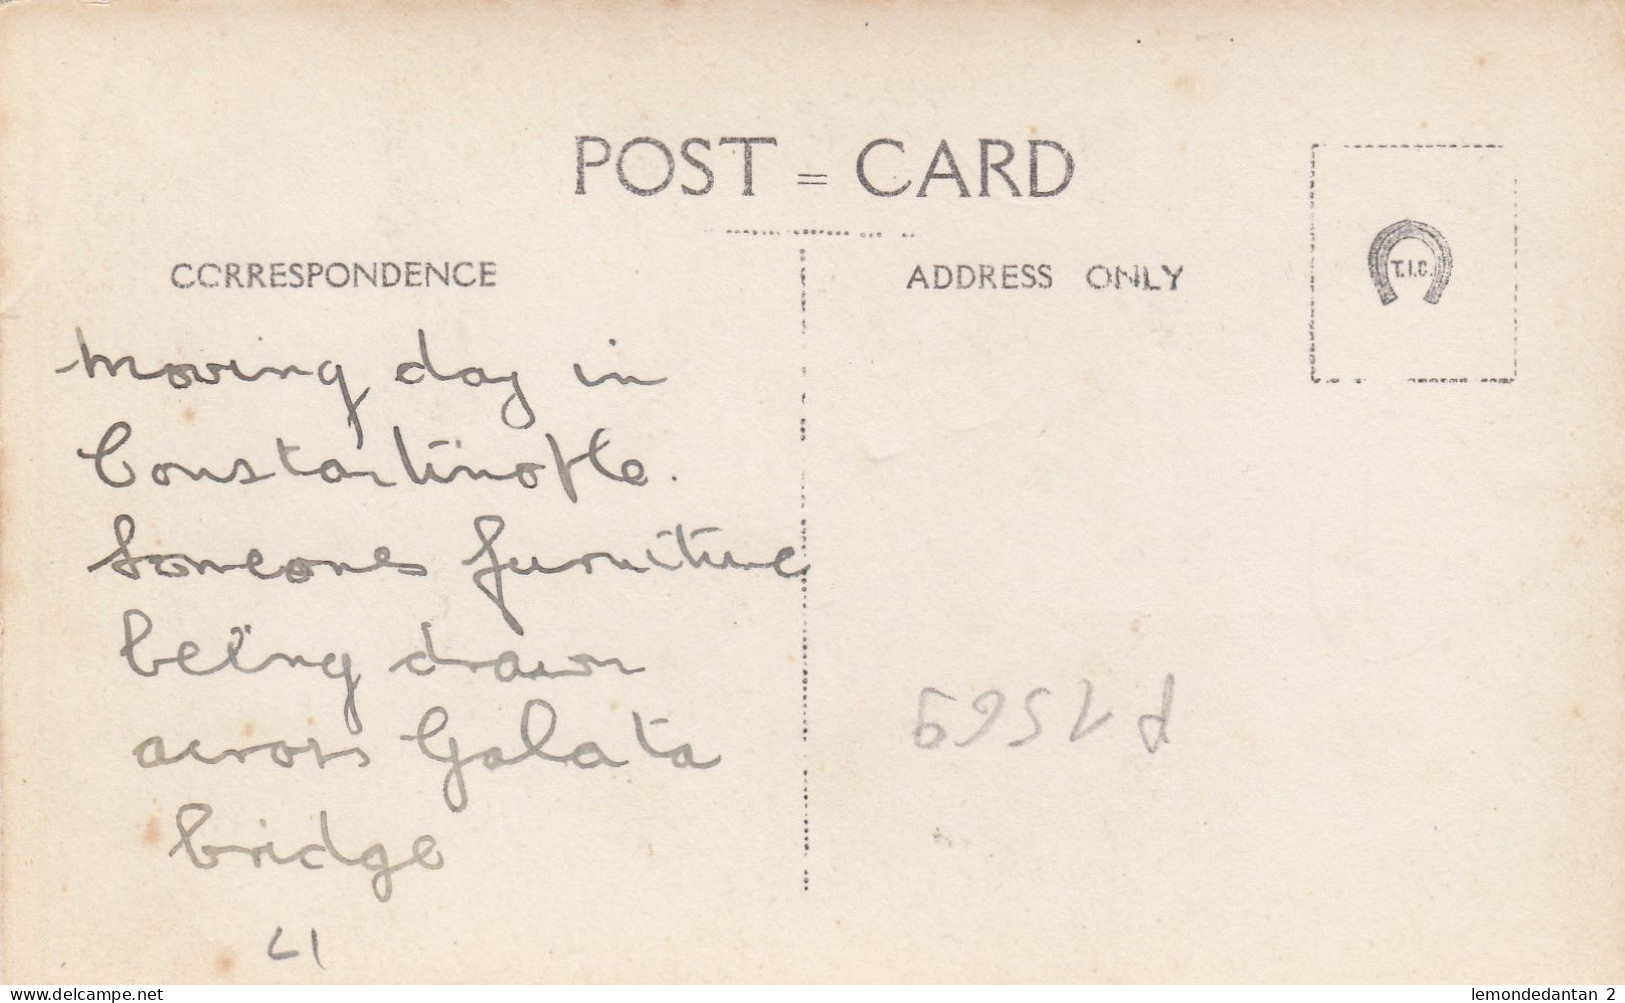 POST = CARD
CORRESPONDENCE
ADDRESS ONLY
T.I.C.
Moving day in
Constantinople.
Someones furniture
being drawn
across Galata
bridge
lemondedantan_2